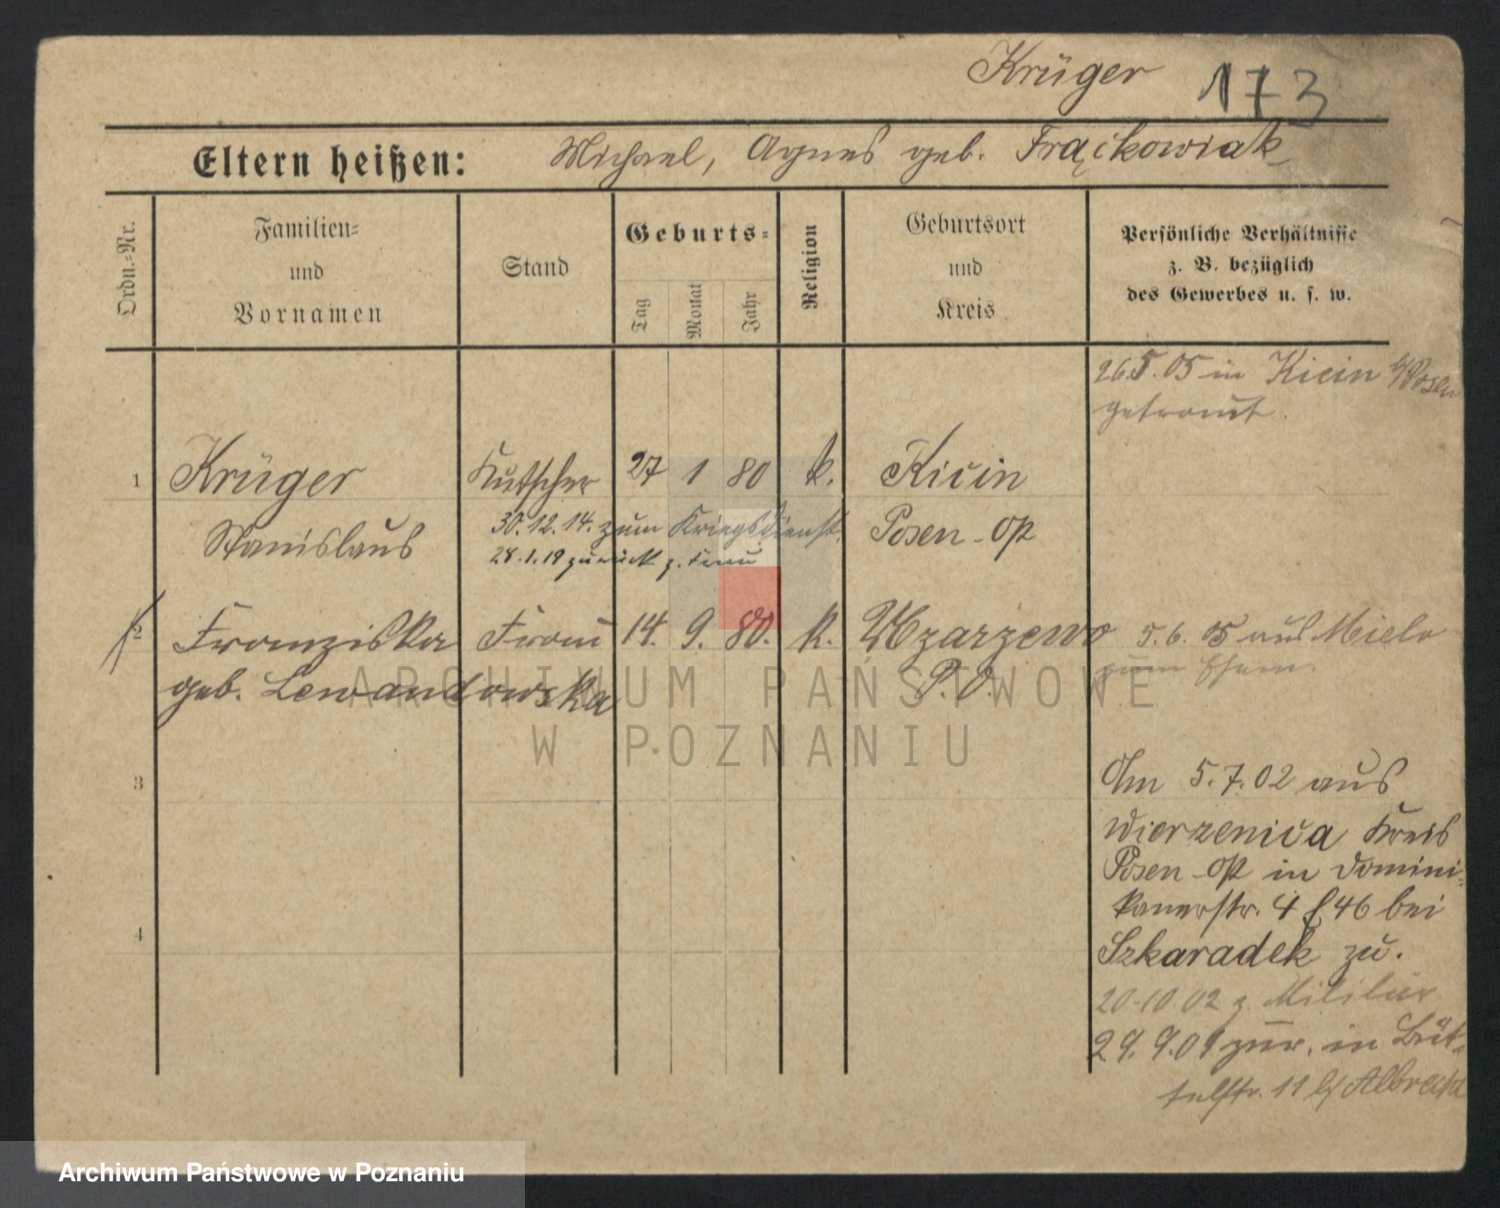 Krüger 173
Eltern heißen: Michael, Agnes geb. Frąckowiak
Ordn.-Nr.
Familien-
und
Vornamen
Stand
Geburts-
Tag
Monat
Jahr
Religion
Geburtsort
und
Kreis
Persönliche Verhältnisse
z. B. bezüglich
des Gewerbes u. s. w.
26.5.05 in Kicin b/Posen
getraut.
1 Krüger Kutscher 27 1 80 k. Kicin
Stanislaus 30.12.14. zum Kriegsdienst. Posen-Ost
28.1.19 zurück z. Frau
2 Franziska Frau 14. 9. 80. k. Uzarzewo 5.6.05 aus
geb. Lewandowska P.O. zum
ARCHIWUM PAŃSTWOWE
W POZNANIU
3
Am 5.7.02 aus
Wierzenica Kreis
Posen-Ost in Domini-
kanerstr. 4 46 bei
4
Szkaradek zu.
20.10.02 z. Militär
29.9.04 zur. in Büt-
telstr. 11 b/ Albrecht
Archiwum Państwowe w Poznaniu